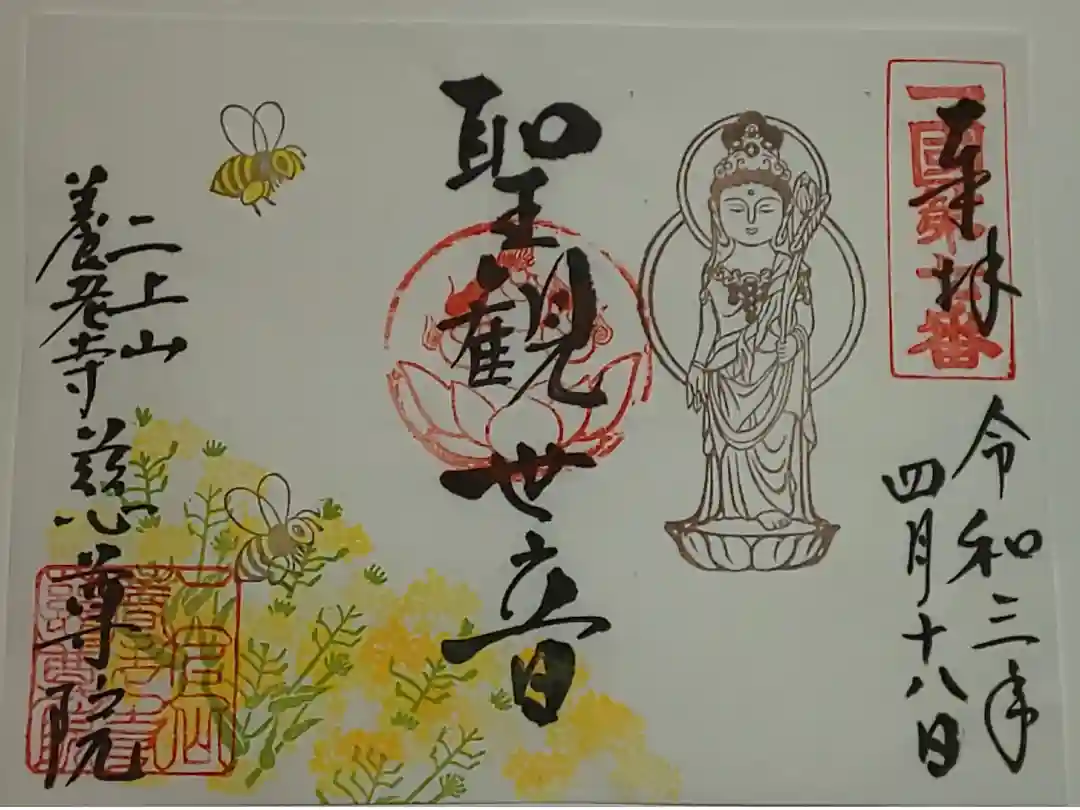 奉拝
令和三年
四月十八日
聖観世音
二上山
養老寺慈尊院